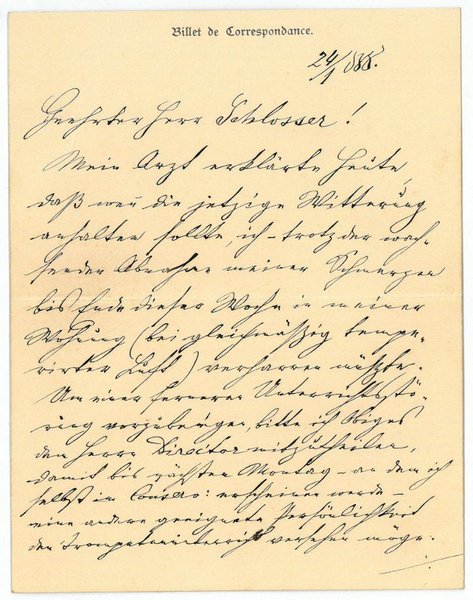 Billet de Correspondance.
24/1 1888.
Geehrter Herr Schlosser!
Mein Arzt erklärte heute,
daß wenn die jetzige Witterung
anhalten sollte, ich – trotz der wach-
senden Abnahme meiner Schmerzen
bis Ende dieser Woche in meiner
Wohnung (bei gleichmäßig tempe-
rirter Luft) verharren müßte.
Um einer ferneren Unterrichtsstö-
rung vorzubeugen, bitte ich Obiges
dem Herrn Director mitzutheilen,
damit bis nächsten Montag – an dem ich
selbst im Conserv: erscheinen werde –
eine andere geeignete Persönlichkeit
den Trompetenunterricht versehen möge.